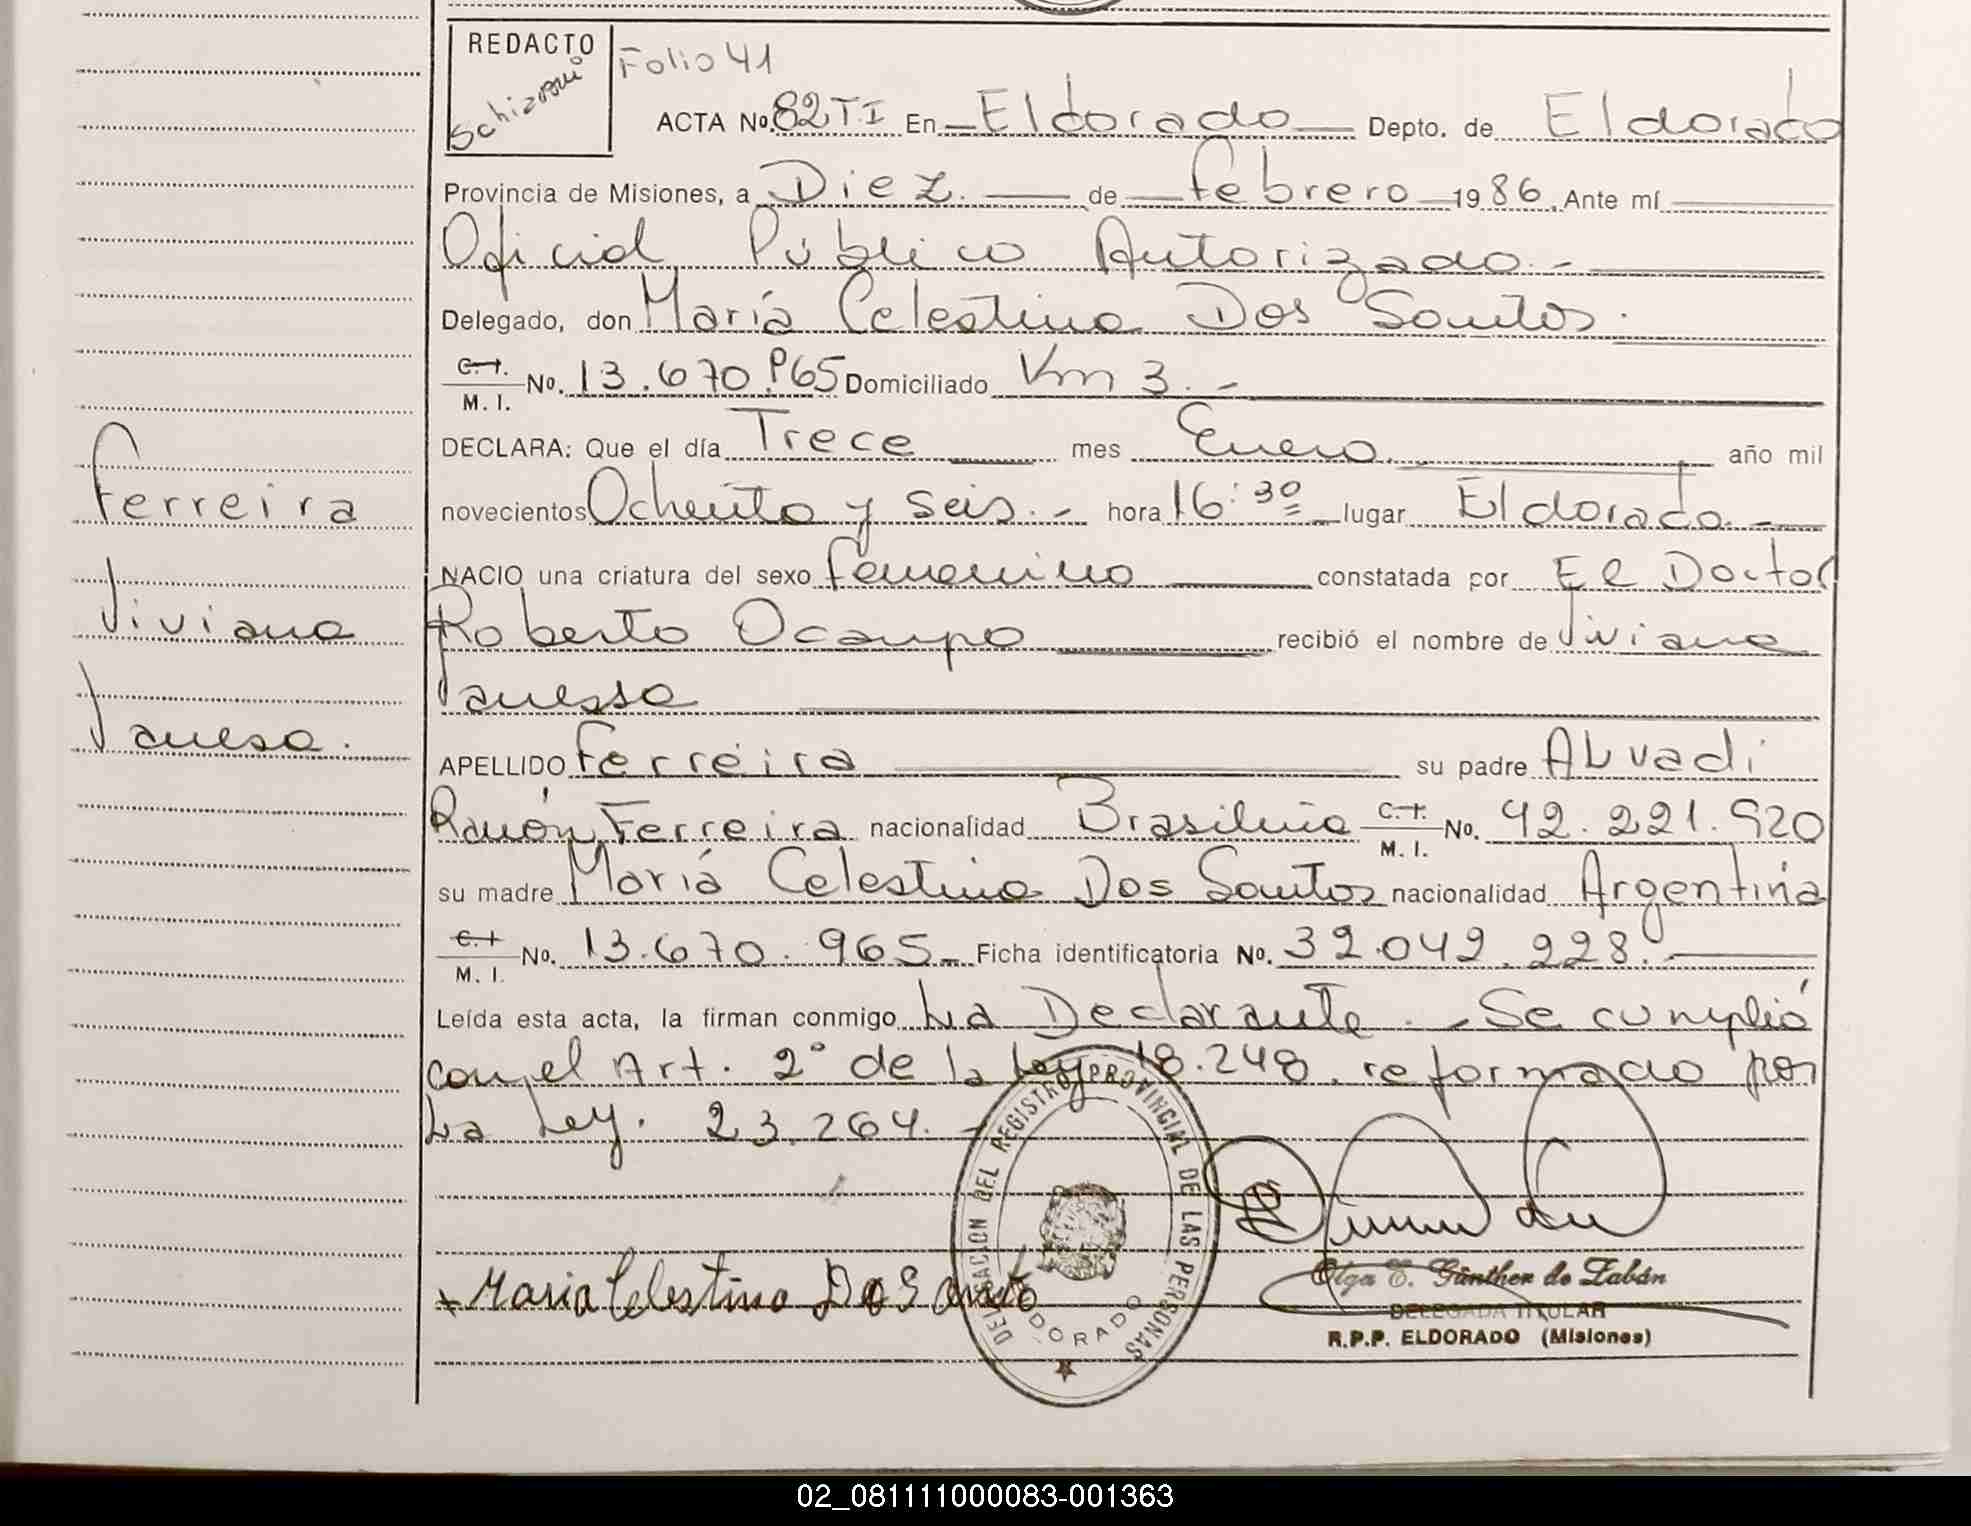 REDACTO
Folio 41
ACTA No. 82 T I En Eldorado Depto. de Eldorado
Provincia de Misiones, a Diez. de febrero 1986. Ante mí
Oficial Público Autorizado.-
Delegado, don María Celestina Dos Santos.
C.I. M.I. No. 13.670.965 Domiciliado Km 3.-
DECLARA: Que el día Trece mes Enero año mil
novecientos Ochenta y seis.- hora 16:30 lugar Eldorado.-
NACIO una criatura del sexo femenino constatada por El Doctor
Roberto Ocampo recibió el nombre de Viviana
Vanessa
APELLIDO Ferreira su padre Alvadi
Ramón Ferreira nacionalidad Brasileña C.I. M.I. No. 92.221.920
su madre María Celestina Dos Santos nacionalidad Argentina
C.I. M.I. No. 13.670.965 Ficha identificatoria No. 32.042.228.
Leída esta acta, la firman conmigo La Declarante.- Se cumplió
con el Art. 2° de la Ley 18.248. reformado por
La Ley. 23.264.-
Ferreira
Viviana
Vanesa.
Maria Celestina Dos Santo
DELEGACION DEL REGISTRO PROVINCIAL DE LAS PERSONAS
ELDORADO
Olga E. Günther de Zabán
DELEGADA TITULAR
R.P.P. ELDORADO (Misiones)
02_081111000083-001363